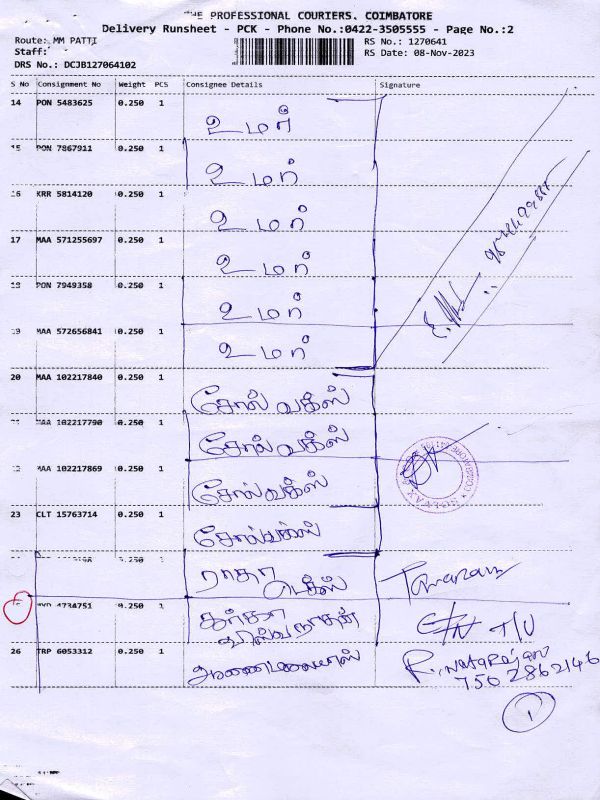 THE PROFESSIONAL COURIERS. COIMBATORE
Delivery Runsheet - PCK - Phone No.:0422-3505555 - Page No.:2
Route: MM PATTI RS No.: 1270641
Staff: RS Date: 08-Nov-2023
DRS No.: DCJB127064102
S No Consignment No Weight PCS Consignee Details Signature
14 PON 5483625 0.250 1
உமர்
15 PON 7867911 0.250 1
உமர்
16 KRR 5814120 0.250 1
உமர்
17 MAA 571255697 0.250 1
உமர்
18 PON 7949358 0.250 1
உமர்
19 MAA 572656841 0.250 1
உமர்
20 MAA 102217840 0.250 1
சோல்வக்ஸ்
MAA 102217790 0.250 1
சோல்வக்ஸ்
MAA 102217869 0.250 1
சோல்வக்ஸ்
23 CLT 15763714 0.250 1
சோல்வக்ஸ்
0.250 1
ராதா டெக்ஸ்
4734751 0.250 1
விஸ்வநாதன்
26 TRP 6053312 0.250 1
அண்ணாமலையார் R. Natarajan
750 2862146
1